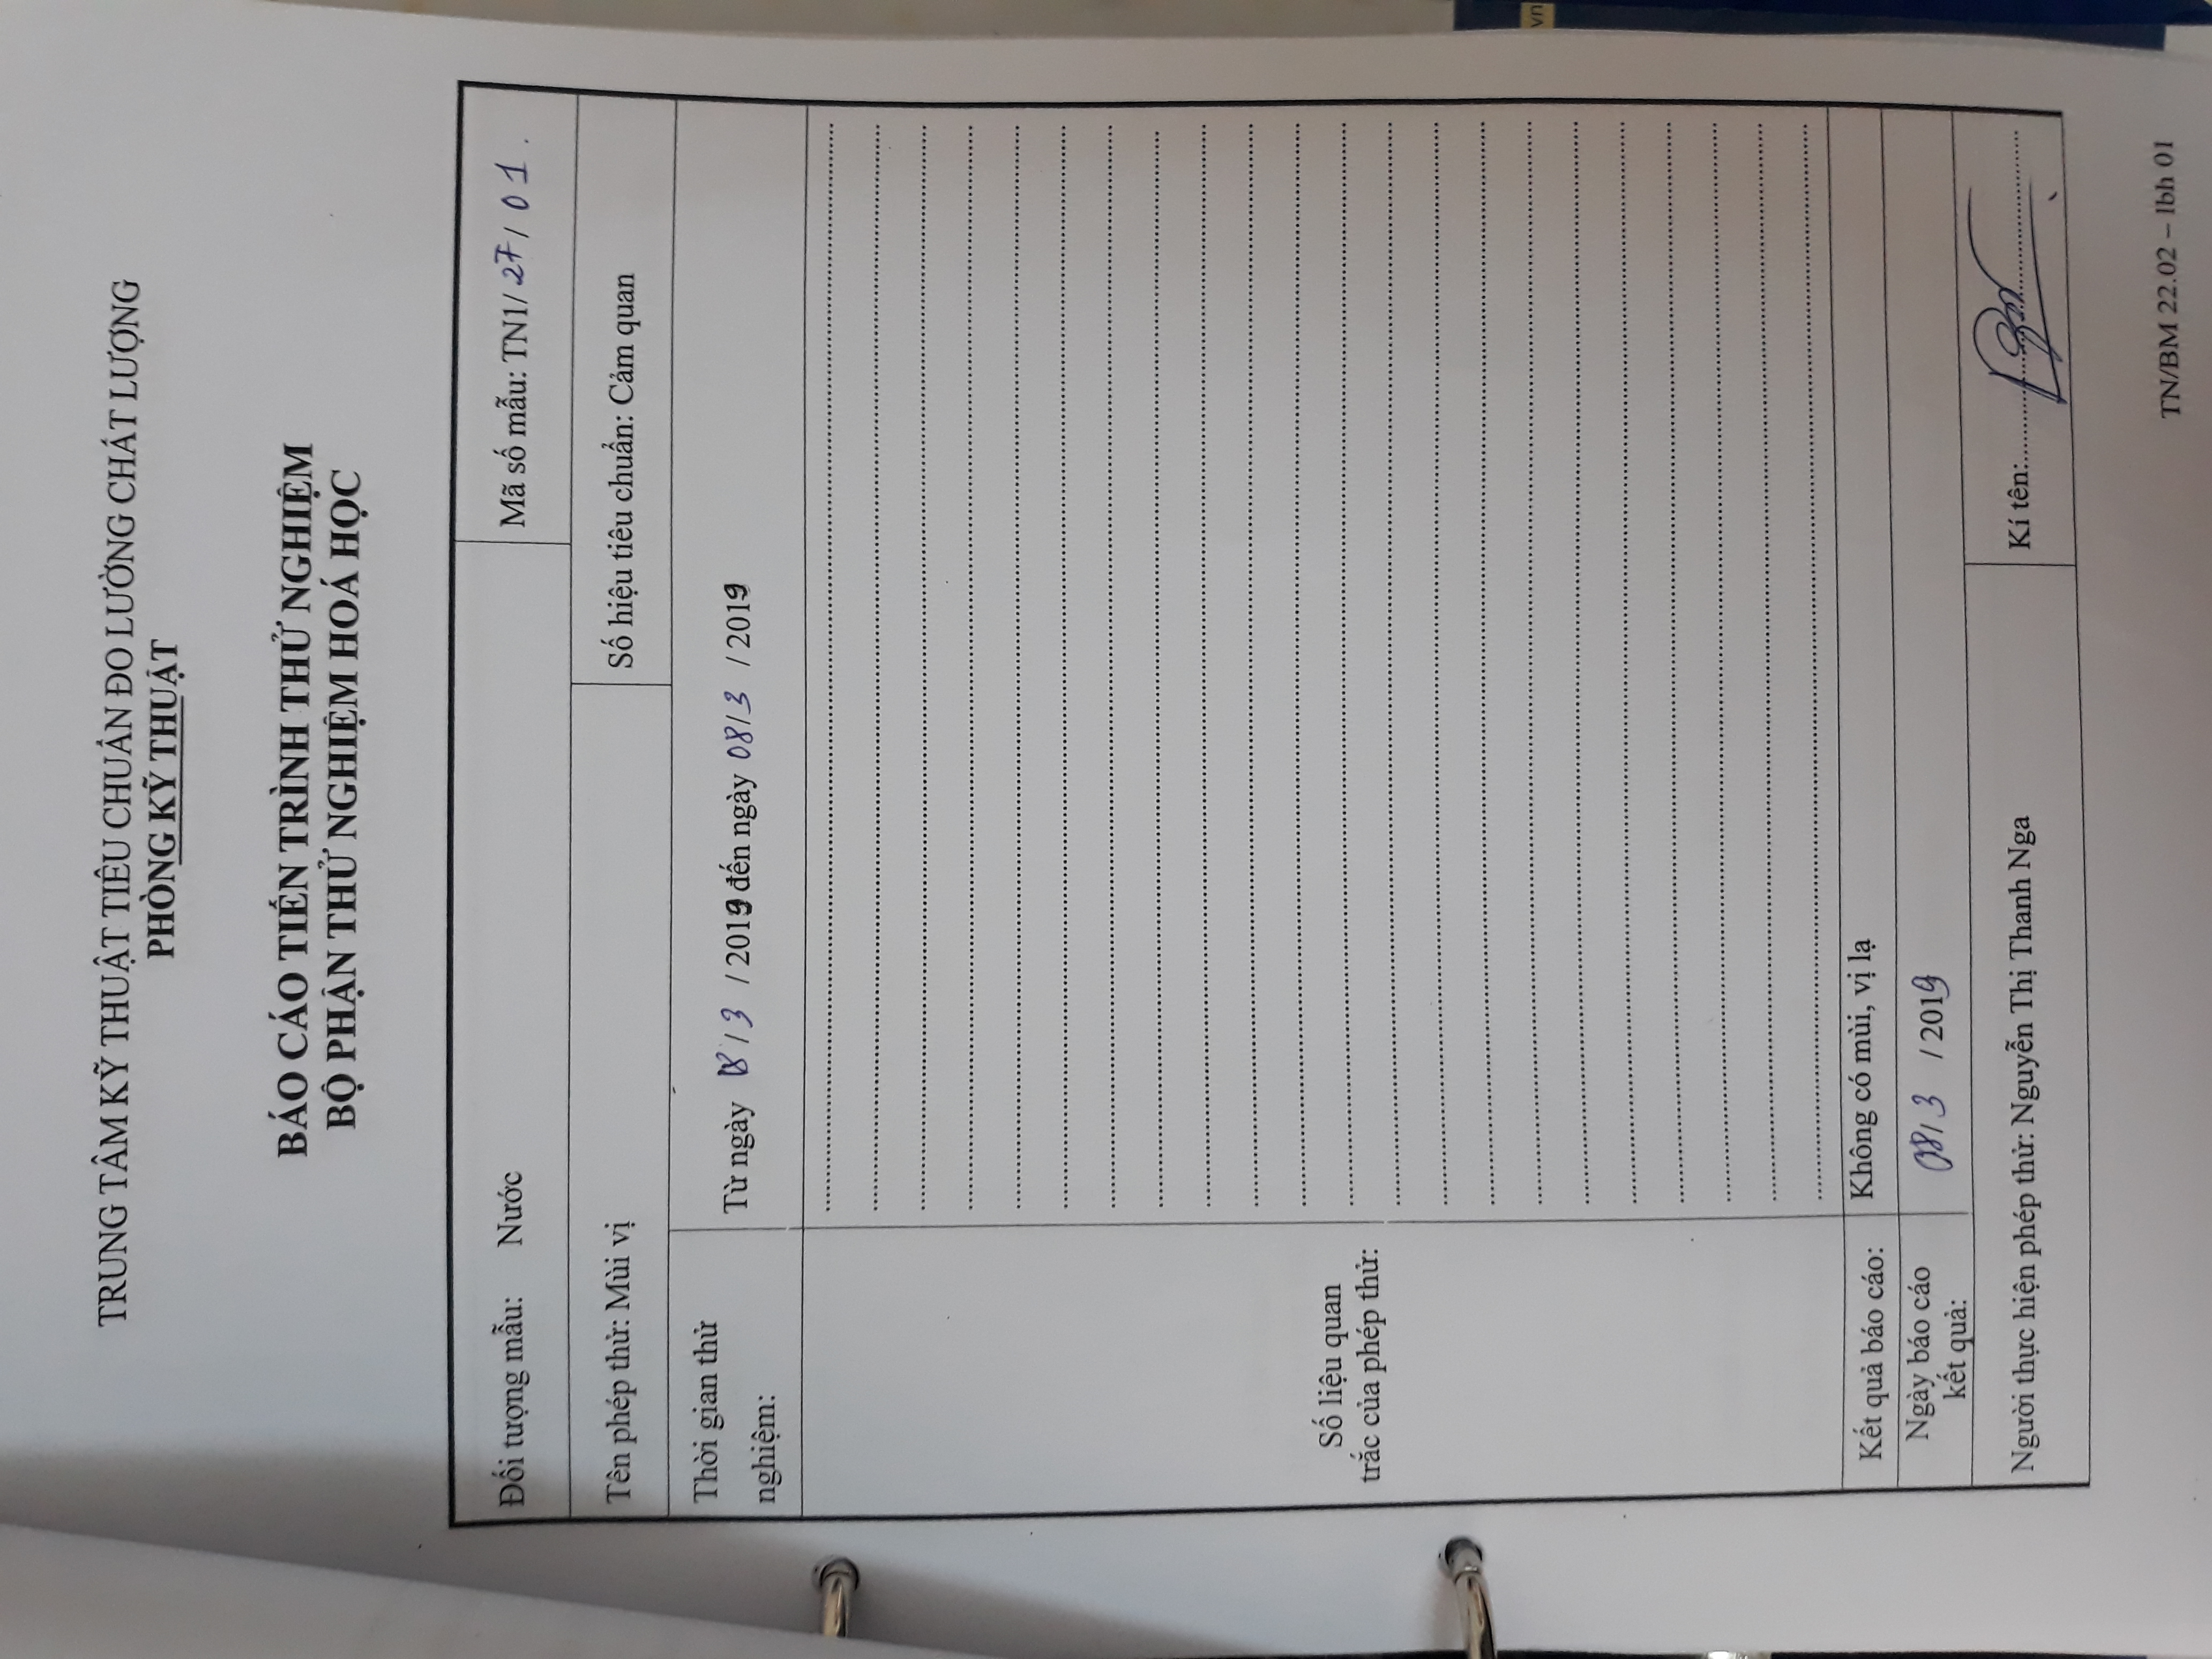 TRUNG TÂM KỸ THUẬT TIÊU CHUẨN ĐO LƯỜNG CHẤT LƯỢNG
PHÒNG KỸ THUẬT
BÁO CÁO TIẾN TRÌNH THỬ NGHIỆM
BỘ PHẬN THỬ NGHIỆM HOÁ HỌC
Đối tượng mẫu: Nước
Mã số mẫu: TN1/ 27 / 01 .
Tên phép thử: Mùi vị
Số hiệu tiêu chuẩn: Cảm quan
Thời gian thử
nghiệm:
Từ ngày 08 / 3 / 2019 đến ngày 08/3 / 2019
Số liệu quan
trắc của phép thử:
Kết quả báo cáo:
Không có mùi, vị lạ
Ngày báo cáo
kết quả:
08/ 3 / 2019
Người thực hiện phép thử: Nguyễn Thị Thanh Nga
Kí tên:
TN/BM 22.02 – lbh 01
vn